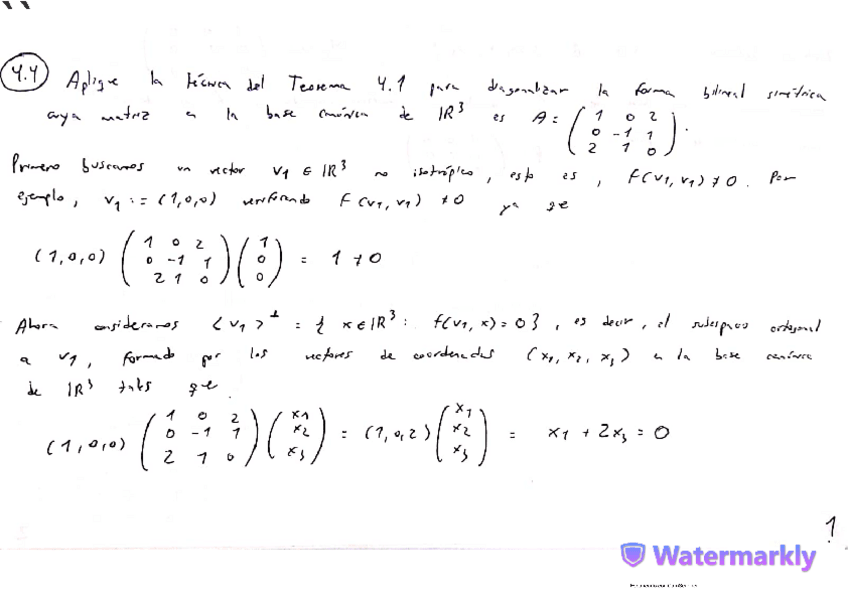 4.4 Aplique la técnica del Teorema 4.1 para diagonalizar la forma bilineal simétrica
cuya matriz en la base canónica de IR³ es A = ( 1 0 2
0 -1 1
2 1 0 ).
Primero buscamos un vector v₁ ∈ IR³ no isotrópico, esto es, f(v₁, v₁) ≠ 0. Por
ejemplo, v₁ := (1,0,0) verificando f(v₁, v₁) ≠ 0 ya que
(1,0,0) ( 1 0 2
0 -1 1
2 1 0 ) ( 1
0
0 ) = 1 ≠ 0
Ahora consideramos <v₁>^⊥ = { x ∈ IR³ : f(v₁, x) = 0 }, es decir, el subespacio ortogonal
a v₁, formado por los vectores de coordenadas (x₁, x₂, x₃) en la base canónica
de IR³ tales que
(1,0,0) ( 1 0 2
0 -1 1
2 1 0 ) ( x₁
x₂
x₃ ) = (1,0,2) ( x₁
x₂
x₃ ) = x₁ + 2x₃ = 0
1
Watermarkly